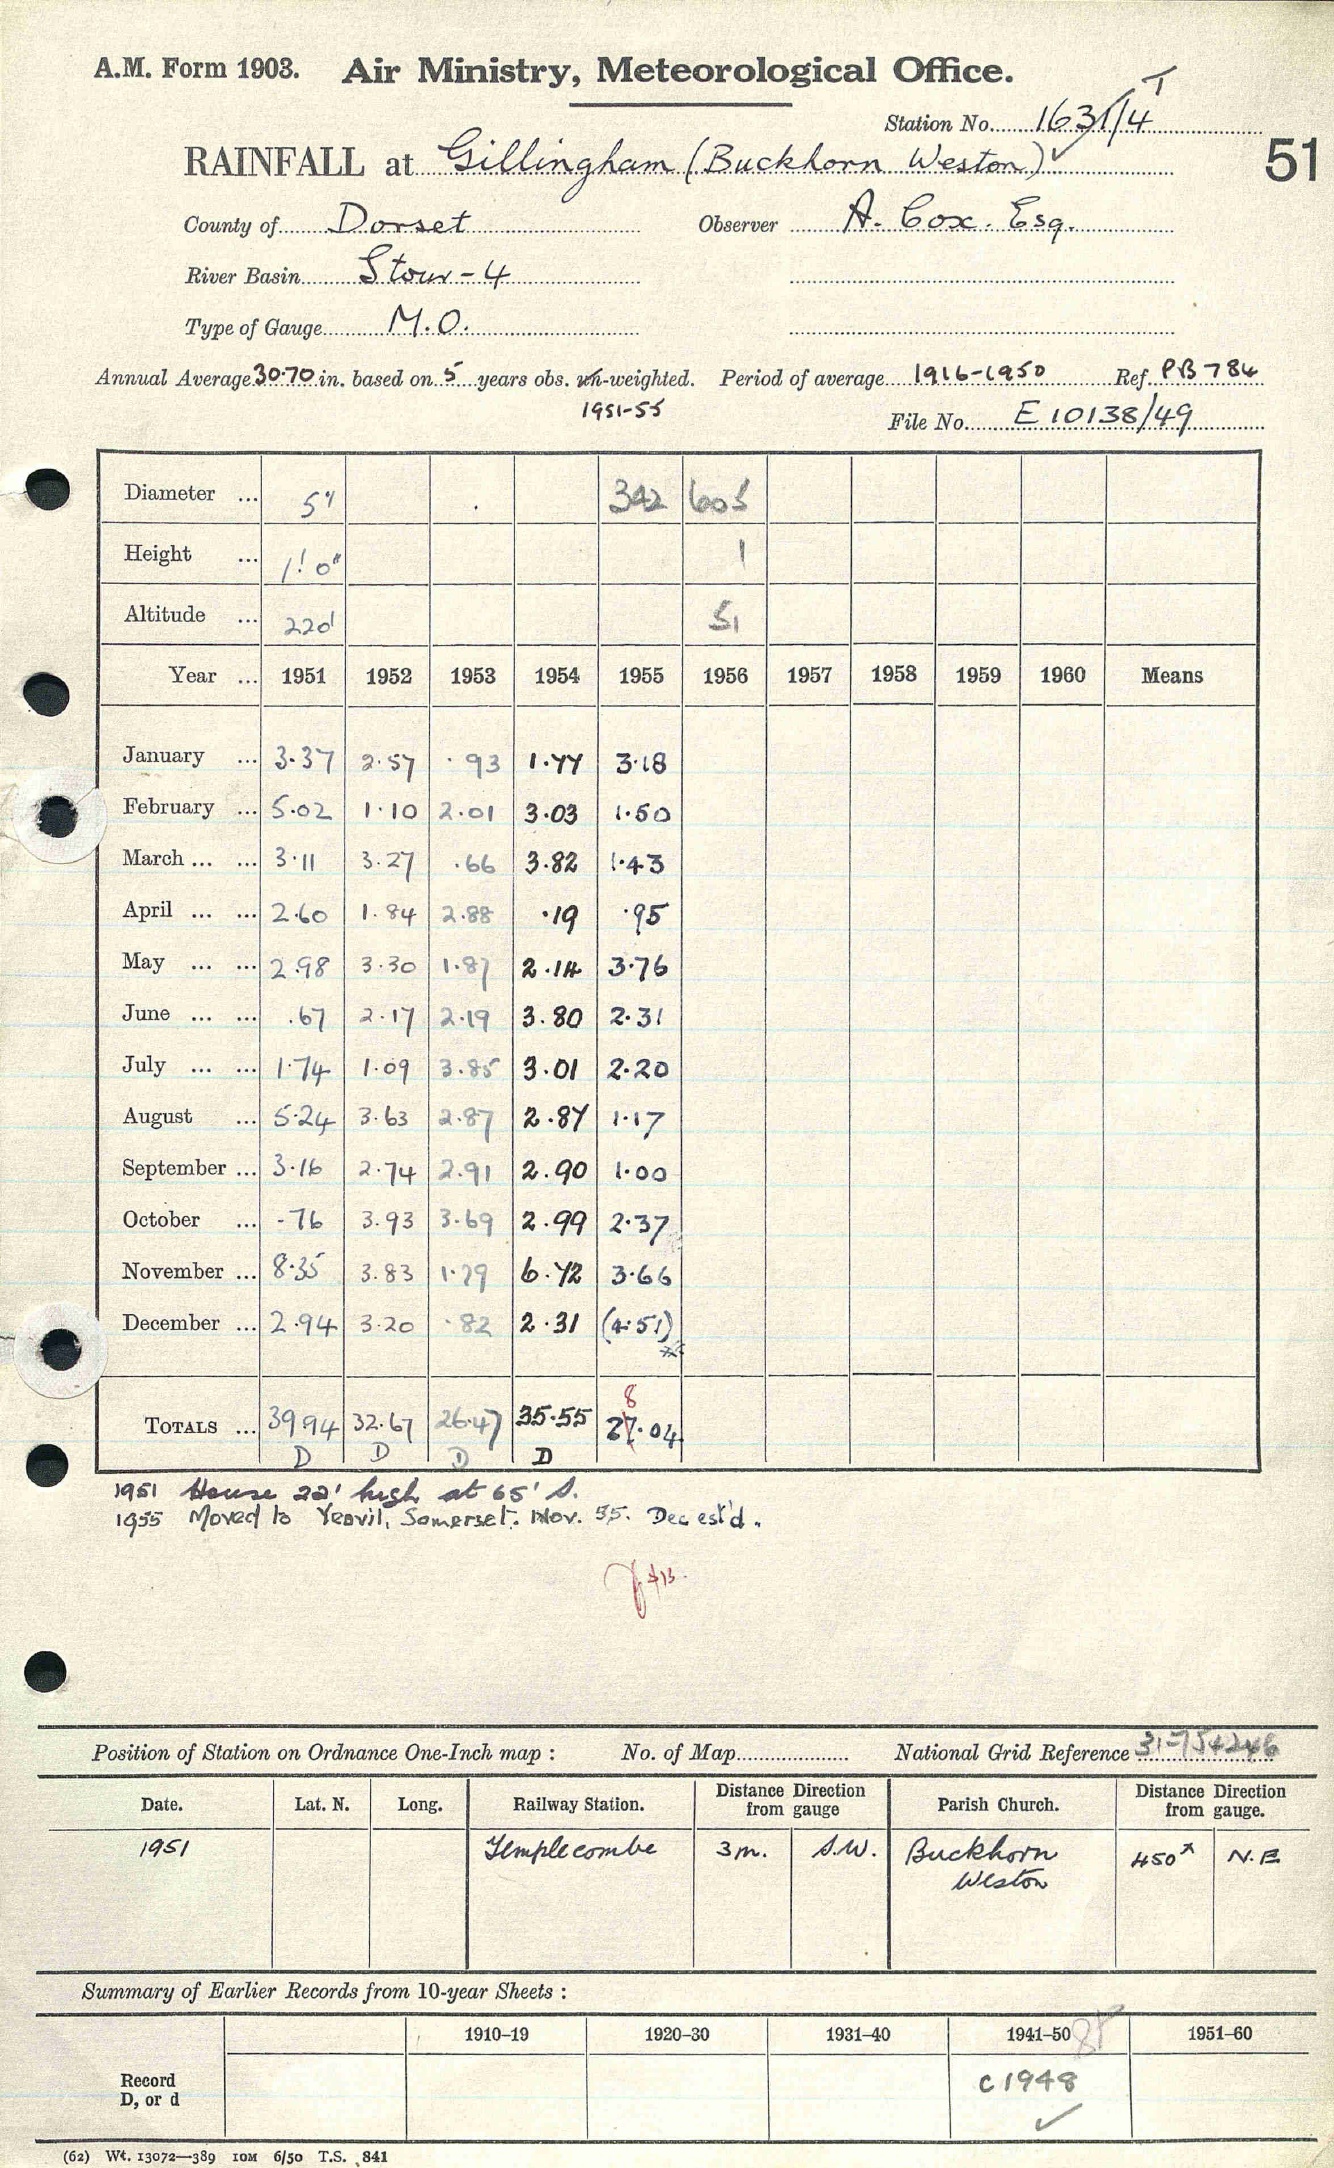 A.M. Form 1903. Air Ministry, Meteorological Office.
Station No. 1631/4 T
RAINFALL at Gillingham (Buckhorn Weston) 51
County of Dorset Observer A. Cox. Esq.
River Basin Stour-4
Type of Gauge M.O.
Annual Average 30.70 in. based on 5 years obs. un-weighted. Period of average 1916-1950 Ref. PB 784
1951-55
File No. E 10138/49
Diameter ... 5" 342 605
Height ... 1' 0" 1
Altitude ... 220' 51
Year ... 1951 1952 1953 1954 1955 1956 1957 1958 1959 1960 Means
January ... 3.37 2.57 .93 1.77 3.18
February ... 5.02 1.10 2.01 3.03 1.50
March ... ... 3.11 3.27 .66 3.82 1.43
April ... ... 2.60 1.84 2.88 .19 .95
May ... ... 2.98 3.30 1.87 2.14 3.76
June ... ... .67 2.17 2.19 3.80 2.31
July ... ... 1.74 1.09 3.85 3.01 2.20
August ... 5.24 3.63 2.87 2.87 1.17
September ... 3.16 2.74 2.91 2.90 1.00
October ... .76 3.93 3.69 2.99 2.37
November ... 8.35 3.83 1.79 6.72 3.66
December ... 2.94 3.20 .82 2.31 (4.51)
8
TOTALS ... 39.94 32.67 26.47 35.55 27.04
D D D D
1951 House 22' high at 65' S.
1955 Moved to Yeovil, Somerset. Nov. 55. Dec est'd.
Position of Station on Ordnance One-Inch map : No. of Map National Grid Reference 31-754246
Date. Lat. N. Long. Railway Station. Distance Direction from gauge Parish Church. Distance Direction from gauge.
1951 Templecombe 3m. S.W. Buckhorn 450x N.E
Weston
Summary of Earlier Records from 10-year Sheets :
1910–19 1920–30 1931–40 1941–50 1951–60
Record
D, or d
c 1948
(62) Wt. 13072—389 10M 6/50 T.S. 841